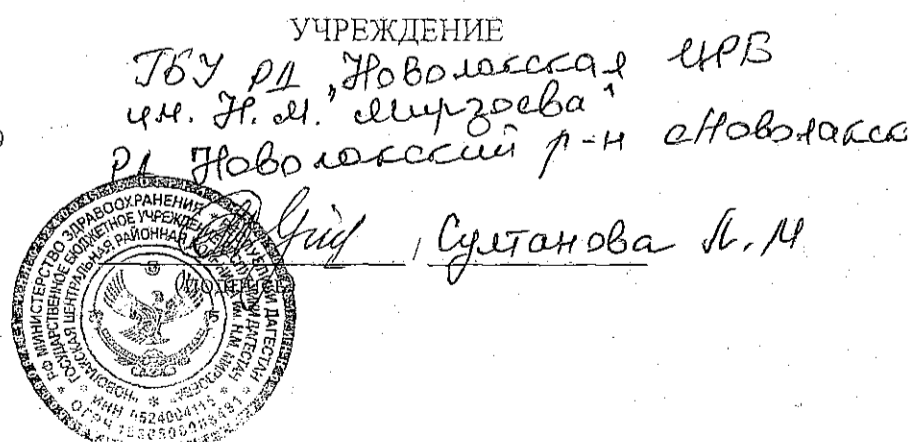 УЧРЕЖДЕНИЕ
ГБУ РД "Новолакская ЦРБ
им. Н.М. Мирзоева"
РД Новолакский р-н с Новолакск
, Султанова Л. М
(подпись)
РФ МИНИСТЕРСТВО ЗДРАВООХРАНЕНИЯ РЕСПУБЛИКИ ДАГЕСТАН
ГОСУДАРСТВЕННОЕ БЮДЖЕТНОЕ УЧРЕЖДЕНИЕ РЕСПУБЛИКИ ДАГЕСТАН
«НОВОЛАКСКАЯ ЦЕНТРАЛЬНАЯ РАЙОННАЯ БОЛЬНИЦА ИМ. Н.М. МИРЗОЕВА»
ИНН 0524004115
ОГРН